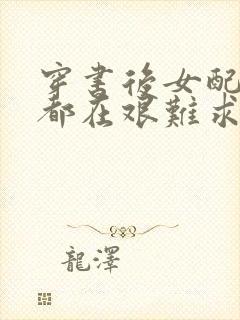 穿書後女配
都在艱難求
龍澤